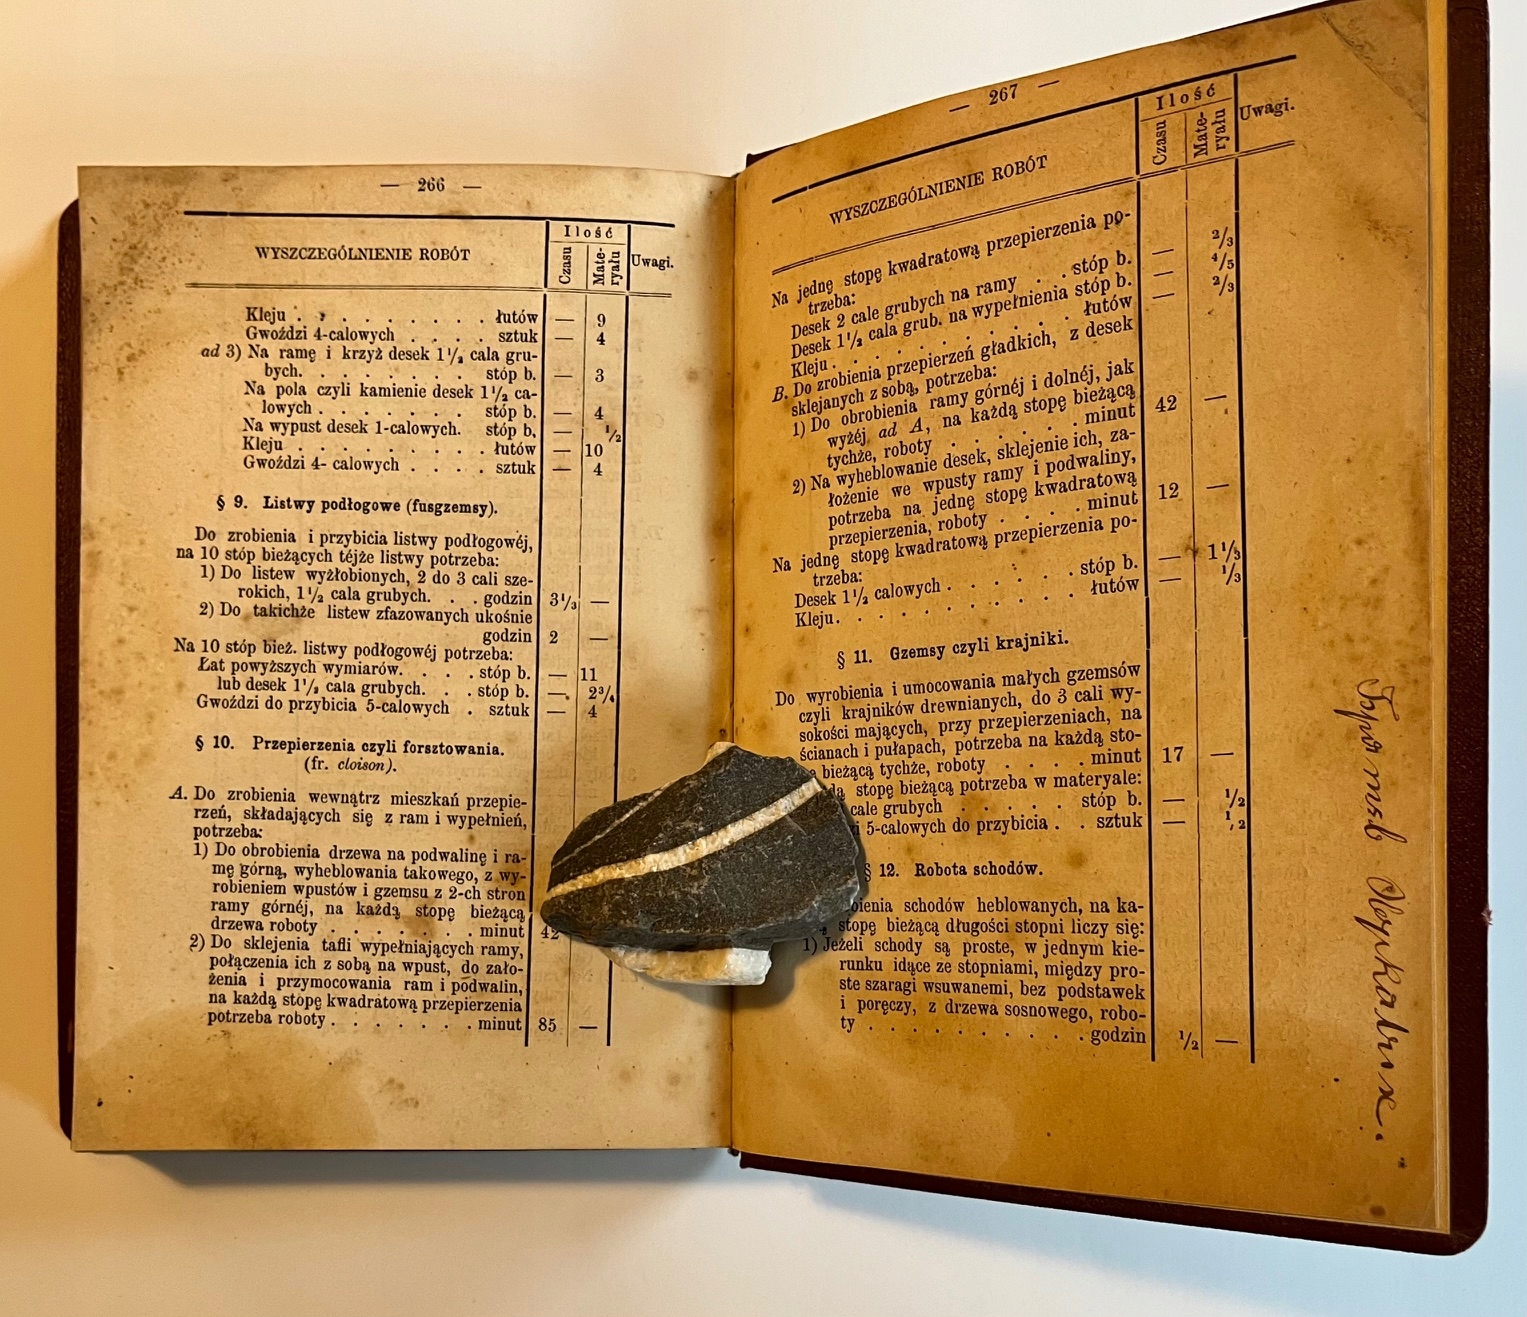 — 266 —
WYSZCZEGÓLNIENIE ROBÓT
Ilość
Czasu
Mate-
ryału
Uwagi.
Kleju . . . . . . . . łutów — 9
Gwoździ 4-calowych . . . . sztuk — 4
ad 3) Na ramę i krzyż desek 1 1/2 cala gru-
bych. . . . . . . . stóp b. — 3
Na pola czyli kamienie desek 1 1/2 ca-
lowych . . . . . . . stóp b. — 4
Na wypust desek 1-calowych. stóp b. — 1/2
Kleju . . . . . . . . . łutów — 10
Gwoździ 4- calowych . . . . sztuk — 4
§ 9. Listwy podłogowe (fusgzemsy).
Do zrobienia i przybicia listwy podłogowéj,
na 10 stóp bieżących téjże listwy potrzeba:
1) Do listew wyżłobionych, 2 do 3 cali sze-
rokich, 1 1/2 cala grubych. . . godzin 3 1/3 —
2) Do takichże listew zfazowanych ukośnie
godzin 2 —
Na 10 stóp bież. listwy podłogowéj potrzeba:
Łat powyższych wymiarów. . . . . stóp b. — 11
lub desek 1 1/2 cala grubych. . . stóp b. — 2 3/4
Gwoździ do przybicia 5-calowych . sztuk — 4
§ 10. Przepierzenia czyli forsztowania.
(fr. cloison).
A. Do zrobienia wewnątrz mieszkań przepie-
rzeń, składających się z ram i wypełnień,
potrzeba:
1) Do obrobienia drzewa na podwalinę i ra-
mę górną, wyheblowania takowego, z wy-
robieniem wpustów i gzemsu z 2-ch stron
ramy górnéj, na każdą stopę bieżącą
drzewa roboty . . . . . . . minut 42
2) Do sklejenia tafli wypełniających ramy,
połączenia ich z sobą na wpust, do zało-
żenia i przymocowania ram i podwalin,
na każdą stopę kwadratową przepierzenia
potrzeba roboty . . . . . . . minut 85 —
— 267 —
WYSZCZEGÓLNIENIE ROBÓT
Ilość
Czasu
Mate-
ryału
Uwagi.
Na jednę stopę kwadratową przepierzenia po-
trzeba:
Desek 2 cale grubych na ramy . . stóp b. — 2/3
Desek 1 1/2 cala grub. na wypełnienia stóp b. — 4/5
Kleju . . . . . . . . . . łutów — 2/3
B. Do zrobienia przepierzeń gładkich, z desek
sklejanych z sobą, potrzeba:
1) Do obrobienia ramy górnéj i dolnéj, jak
wyżéj ad A, na każdą stopę bieżącą
tychże, roboty . . . . . . . minut 42 —
2) Na wyheblowanie desek, sklejenie ich, za-
łożenie we wpusty ramy i podwaliny,
potrzeba na jednę stopę kwadratową
przepierzenia, roboty . . . . . minut 12 —
Na jednę stopę kwadratową przepierzenia po-
trzeba:
Desek 1 1/2 calowych . . . . . . stóp b. — 1 1/3
Kleju. . . . . . . . . . łutów — 1/3
§ 11. Gzemsy czyli krajniki.
Do wyrobienia i umocowania małych gzemsów
czyli krajników drewnianych, do 3 cali wy-
sokości mających, przy przepierzeniach, na
ścianach i pułapach, potrzeba na każdą sto-
bieżącą tychże, roboty . . . . minut 17 —
stopę bieżącą potrzeba w materyale:
cale grubych . . . . . stóp b. — 1/2
5-calowych do przybicia . . sztuk — 1/2
§ 12. Robota schodów.
schodów heblowanych, na ka-
stopę bieżącą długości stopni liczy się:
1) Jeżeli schody są proste, w jednym kie-
runku idące ze stopniami, między pro-
ste szaragi wsuwanemi, bez podstawek
i poręczy, z drzewa sosnowego, robo-
ty . . . . . . . . . . godzin 1/2 —